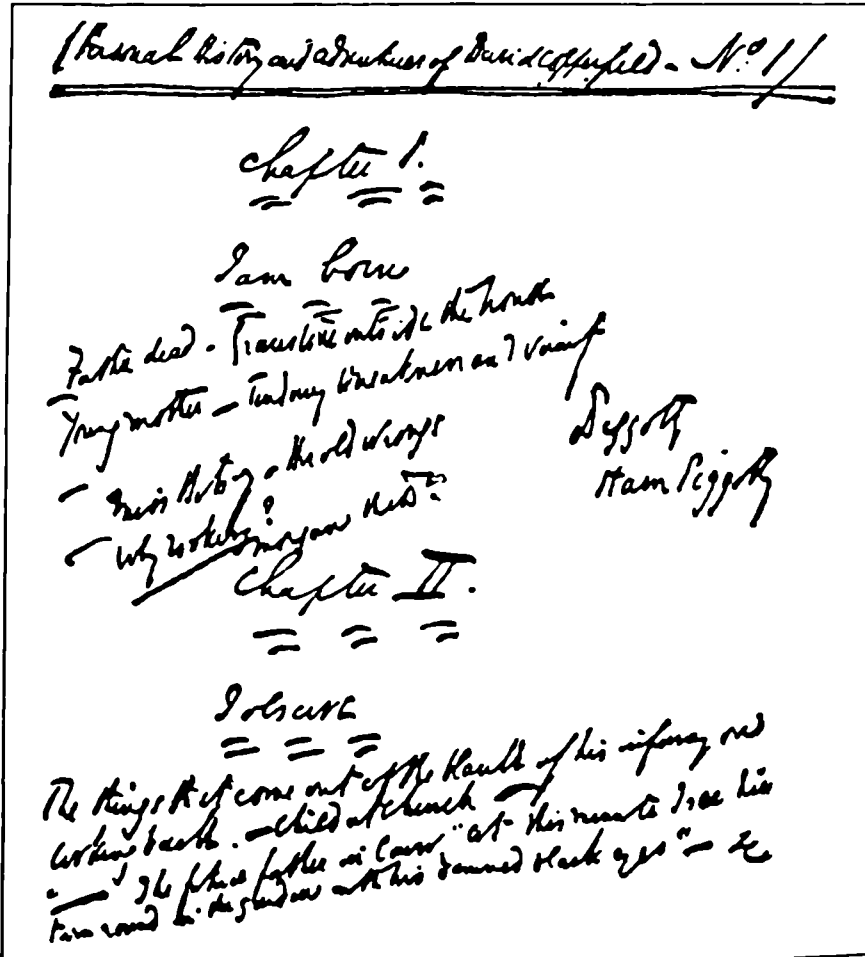 (Personal History and adventures of David Copperfield - No. 1)
Chapter I.
I am born
Father dead - Gravestone outside the house
Young mother - tendency to weakness and vanity
Peggotty
Miss Betsey - the old wrongs
Ham Peggotty
Why Rookery?
Chapter II.
I observe
The things that come out of the blank of his infancy and
looking back. - Child at Church
The future father in law "at this minute I see him
turn round in the garden with his damned black eyes" - &c